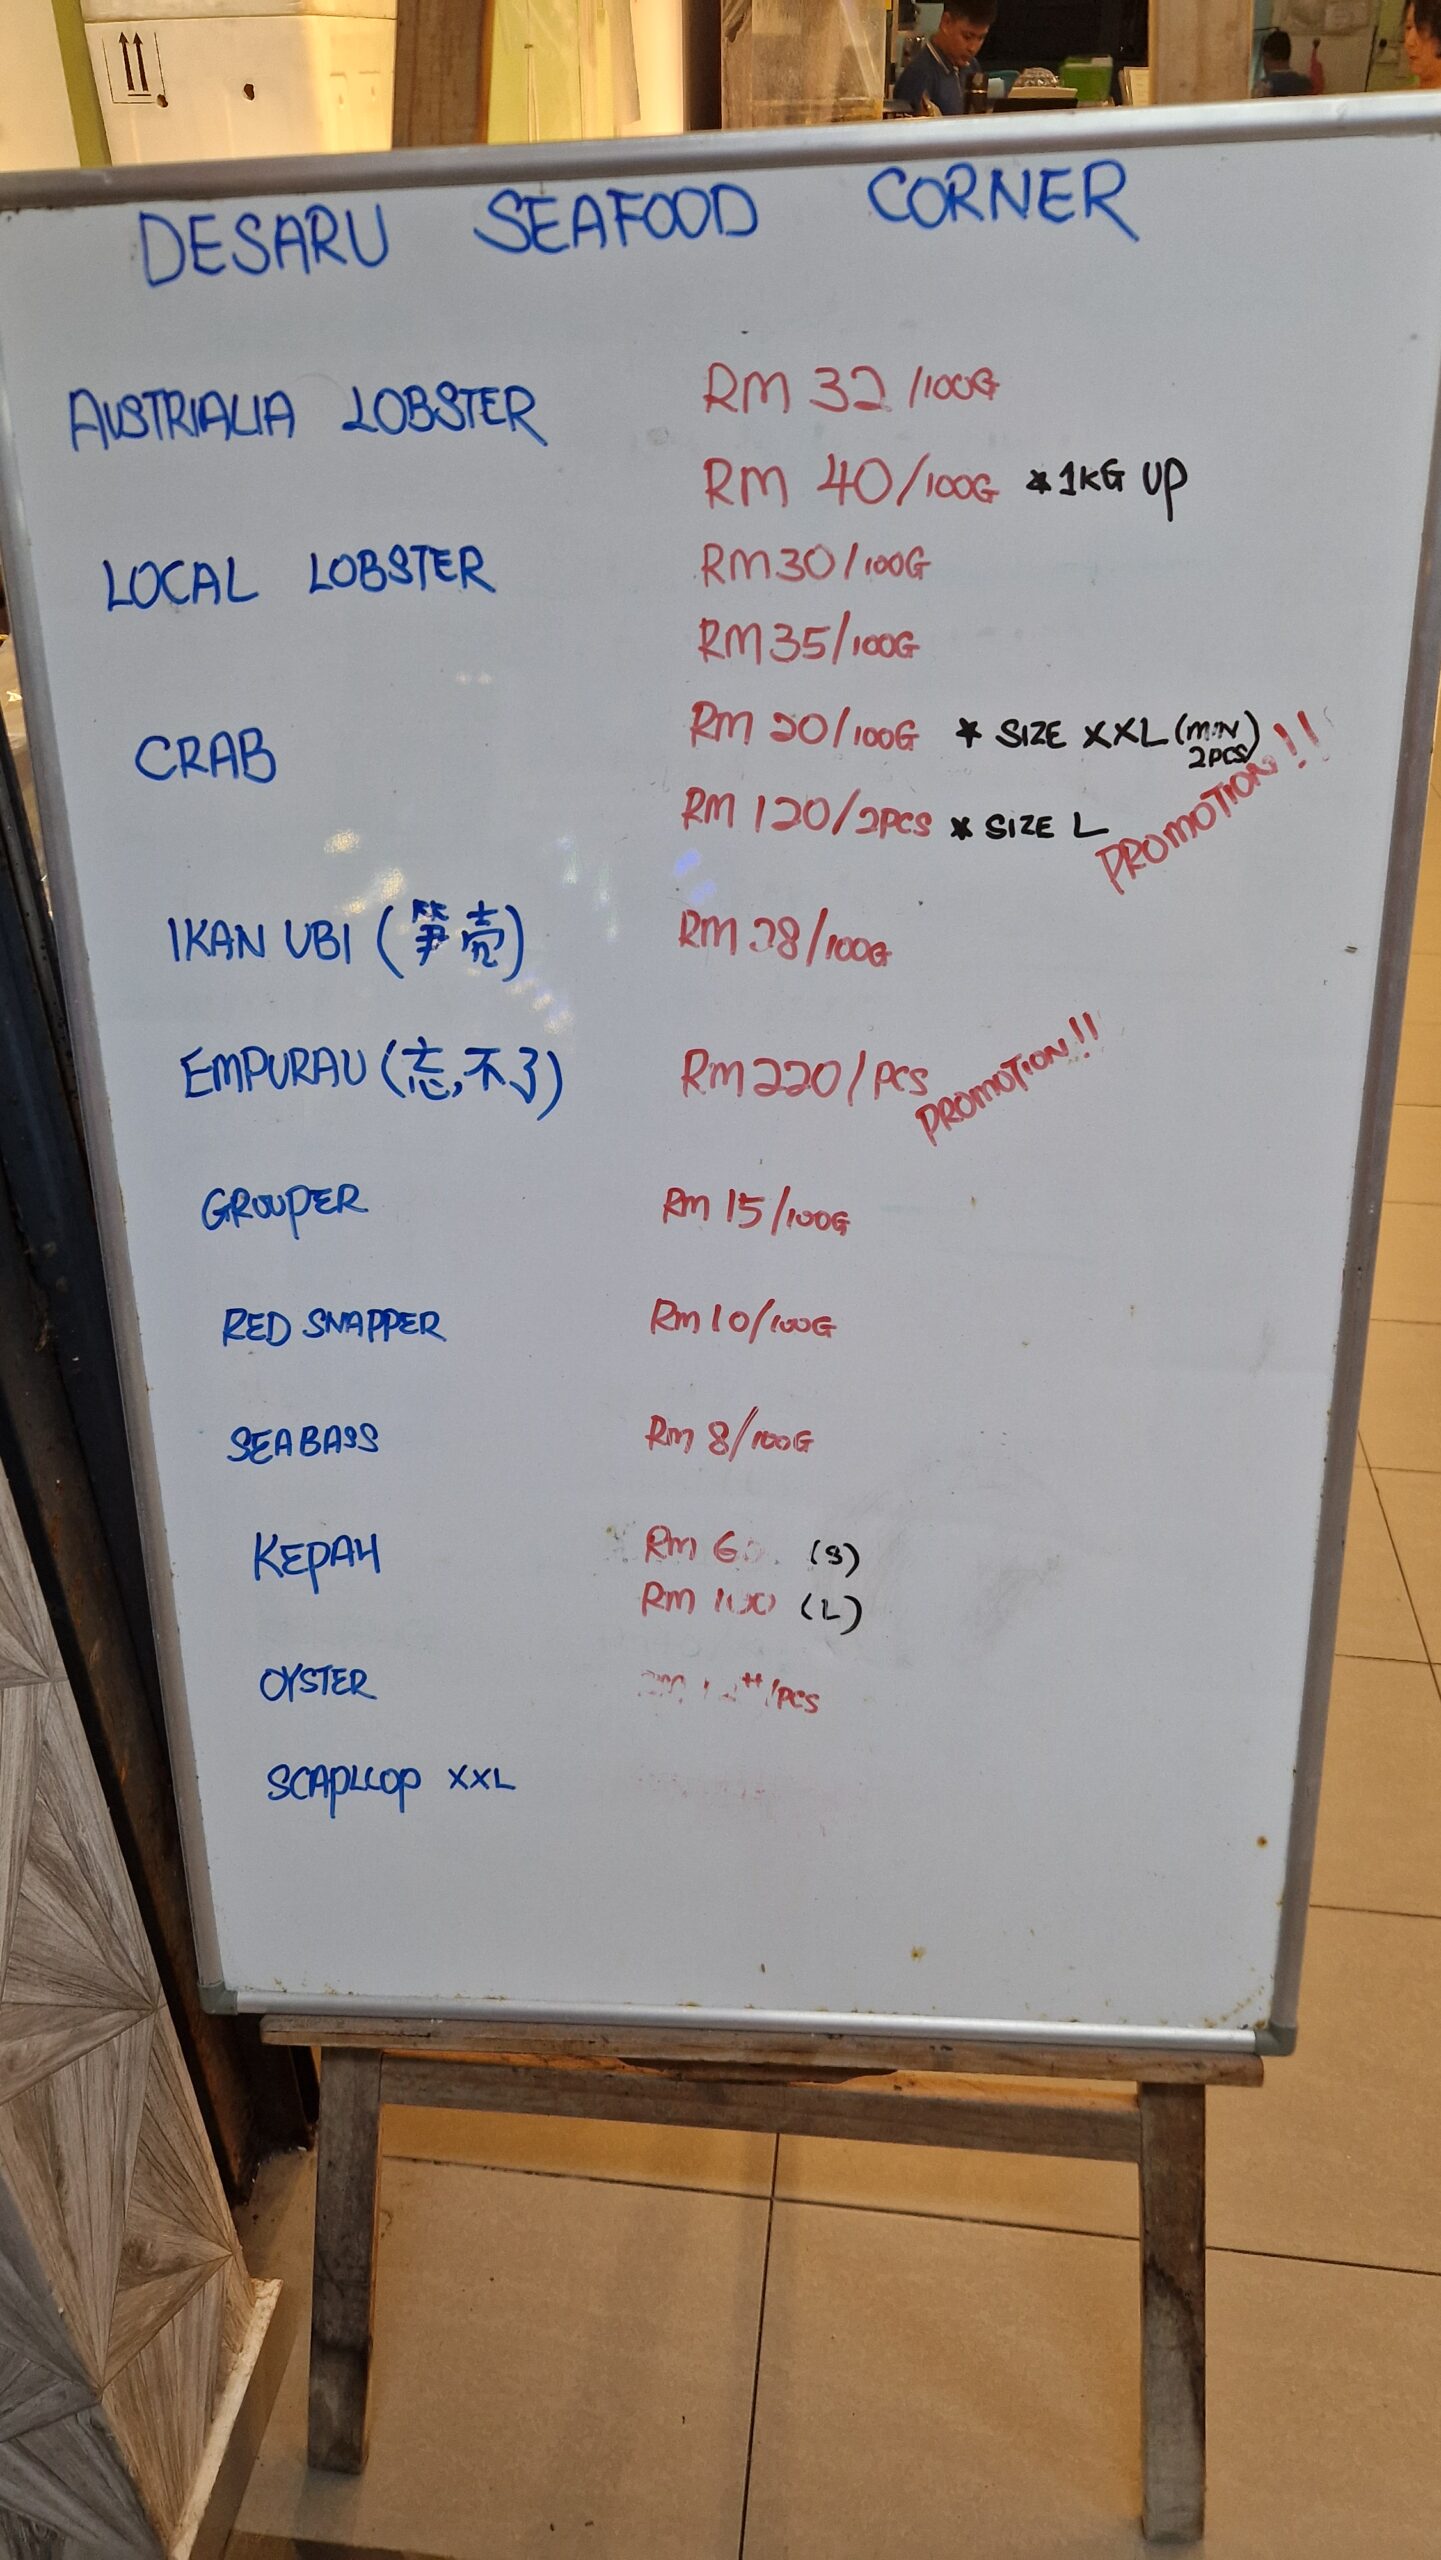 DESARU SEAFOOD CORNER
AUSTRIALIA LOBSTER RM 32/100G
RM 40/100G *1KG UP
LOCAL LOBSTER RM30/100G
RM35/100G
CRAB RM 20/100G * SIZE XXL (MIN 2PCS)
RM 120/2PCS * SIZE L PROMOTION!!
IKAN UBI (笋壳) RM 28/100G
EMPURAU (忘,不了) RM220/PCS PROMOTION!!
GROUPER RM 15/100G
RED SNAPPER RM10/100G
SEABASS RM 8/100G
KEPAH RM (S)
RM 100 (L)
OYSTER /PCS
SCAPLLOP XXL